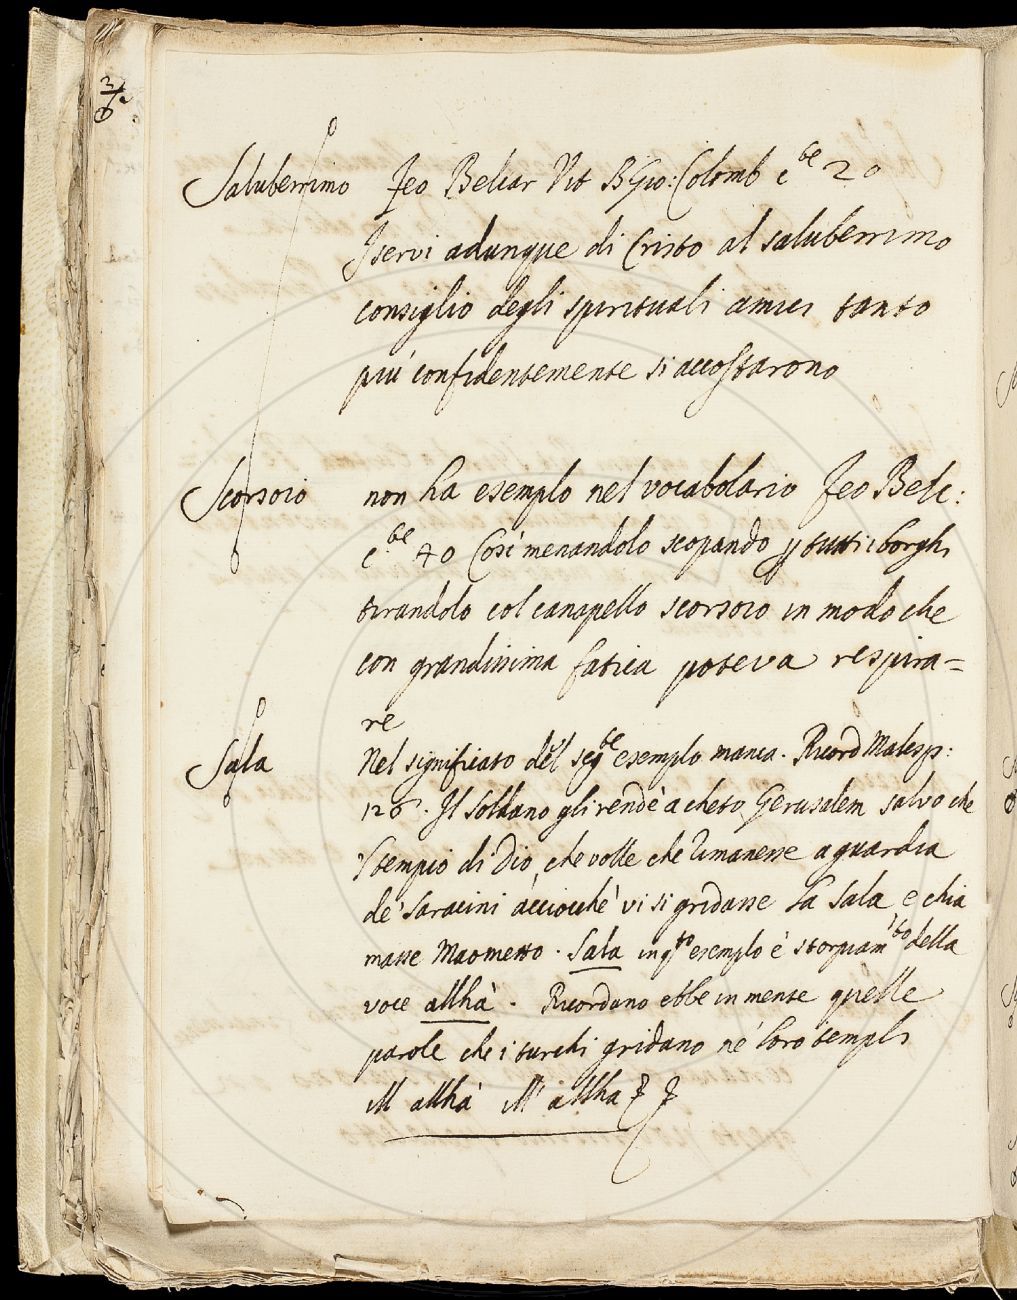 Saluberrimo Feo Belcar Vit B Gio: Colomb c.be 20
I servi adunque di Cristo al saluberrimo
consiglio degli spirituali amici tanto
più confidentemente si accostarono
Scorsoio non ha esemplo nel vocabolario Feo Belc:
c.be 40 Così menandolo scopando p tutti i borghi
tirandolo col canapello scorsoio in modo che
con grandissima fatica poteva respira=
re
Sala Nel significato del segte esemplo manca. Ricord Malesp:
126. Il Soldano gli rendè a cheto Gerusalem salvo che
'l tempio di Dio, che volle che rimanesse a guardia
de' Saracini acciocchè vi si gridasse la Sala, e chia
masse Maometto. Sala in qto esemplo è storpiamto della
voce allhà. Ricordano ebbe in mente quelle
parole che i turchi gridano ne' loro templi
Ill allhà Ill' allha